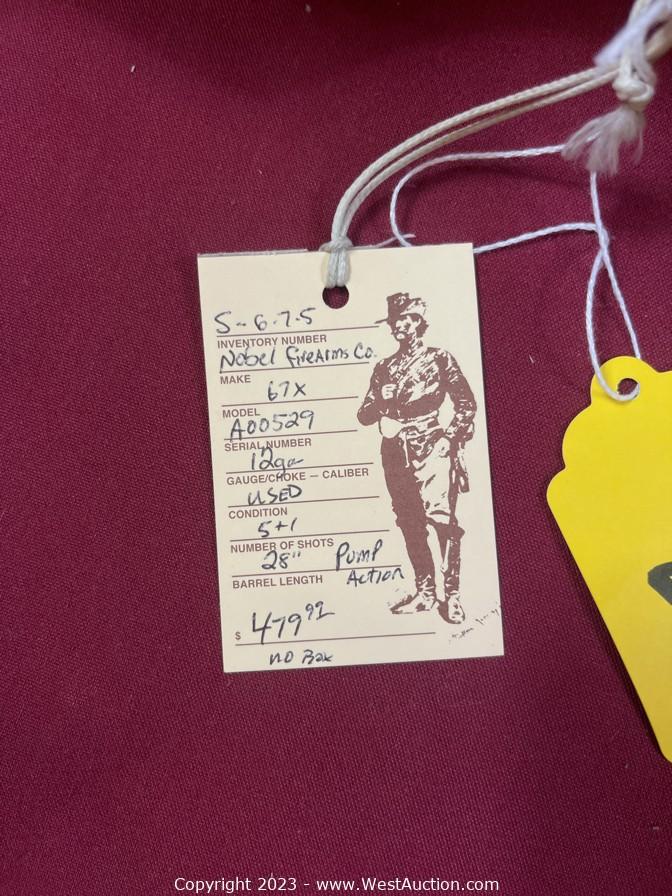 S-6-7-5
INVENTORY NUMBER
Nobel FireArms Co.
MAKE
67X
MODEL
A00529
SERIAL NUMBER
12ga
GAUGE/CHOKE — CALIBER
USED
CONDITION
5+1
NUMBER OF SHOTS
28" Pump
BARREL LENGTH Action
$ 479 92
NO Box
Copyright 2023 - www.WestAuction.com